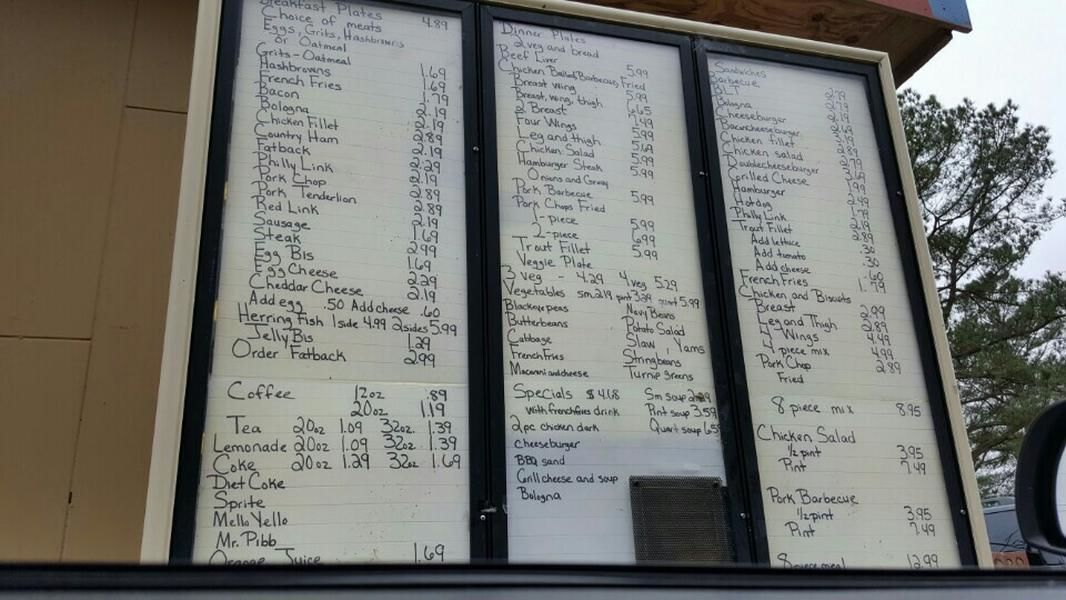 Breakfast Plates
Choice of meats 4.89
Eggs, Grits, Hashbrowns
or Oatmeal
Grits-Oatmeal 1.69
Hashbrowns 1.69
French Fries 1.79
Bacon 2.19
Bologna 2.19
Chicken Fillet 2.89
Country Ham 2.19
Fatback 2.29
Philly Link 2.19
Pork Chop 2.89
Pork Tenderlion 2.89
Red Link 2.19
Sausage 1.69
Steak 2.99
Egg Bis 1.69
Egg Cheese 2.29
Cheddar Cheese 2.19
Add egg .50 Add cheese .60
Herring Fish 1 side 4.99 2 sides 5.99
Jelly Bis 1.29
Order Fatback 2.99
Coffee 12oz .89
20oz 1.19
Tea 20oz 1.09 32oz. 1.39
Lemonade 20oz 1.09 32oz 1.39
Coke 20oz 1.29 32oz 1.69
Diet Coke
Sprite
Mello Yello
Mr. Pibb
Orange Juice 1.69
Dinner Plates
2 veg and bread
Beef Liver 5.99
Chicken Baked, Barbecue, Fried
Breast wing 5.99
Breast, wing, thigh 6.65
2 Breast 7.49
Four Wings 5.99
Leg and thigh 5.69
Chicken Salad 5.99
Hamburger Steak 5.99
Onions and Gravy
Pork Barbecue 5.99
Pork Chops Fried
1-piece 5.99
2-piece 6.99
Trout Fillet 5.99
Veggie Plate
3 veg - 4.29 4 veg 5.29
Vegetables sm 2.19 pint 3.29 quart 5.99
Blackeye peas Navy Beans
Butterbeans Potato Salad
Cabbage Slaw, Yams
French Fries Stringbeans
Macaroni and cheese Turnip greens
Specials $4.68 Sm soup
with french fries drink Pint soup 3.59
2 pc chicken dark Quart soup
cheeseburger
BBQ sand
Grill cheese and soup
Bologna
Sandwiches
Barbecue 2.79
BLT 2.79
Bologna 2.19
Cheeseburger
Baconcheeseburger
Chicken fillet 2.89
Chicken salad 2.79
Doublecheeseburger 3.69
Grilled Cheese 1.99
Hamburger 2.49
Hotdog 1.79
Philly Link 2.19
Trout Fillet 2.89
Add lettuce .30
Add tomato .30
Add cheese .60
French Fries 1.79
Chicken and Biscuts
Breast 2.99
Leg and Thigh 2.89
4 Wings 4.49
4 piece mix 4.99
Pork Chop 2.89
Fried
8 piece mix 8.95
Chicken Salad
1/2 pint 3.95
Pint 7.49
Pork Barbecue
1/2 pint 3.95
Pint 7.49
8 piece meal 12.99